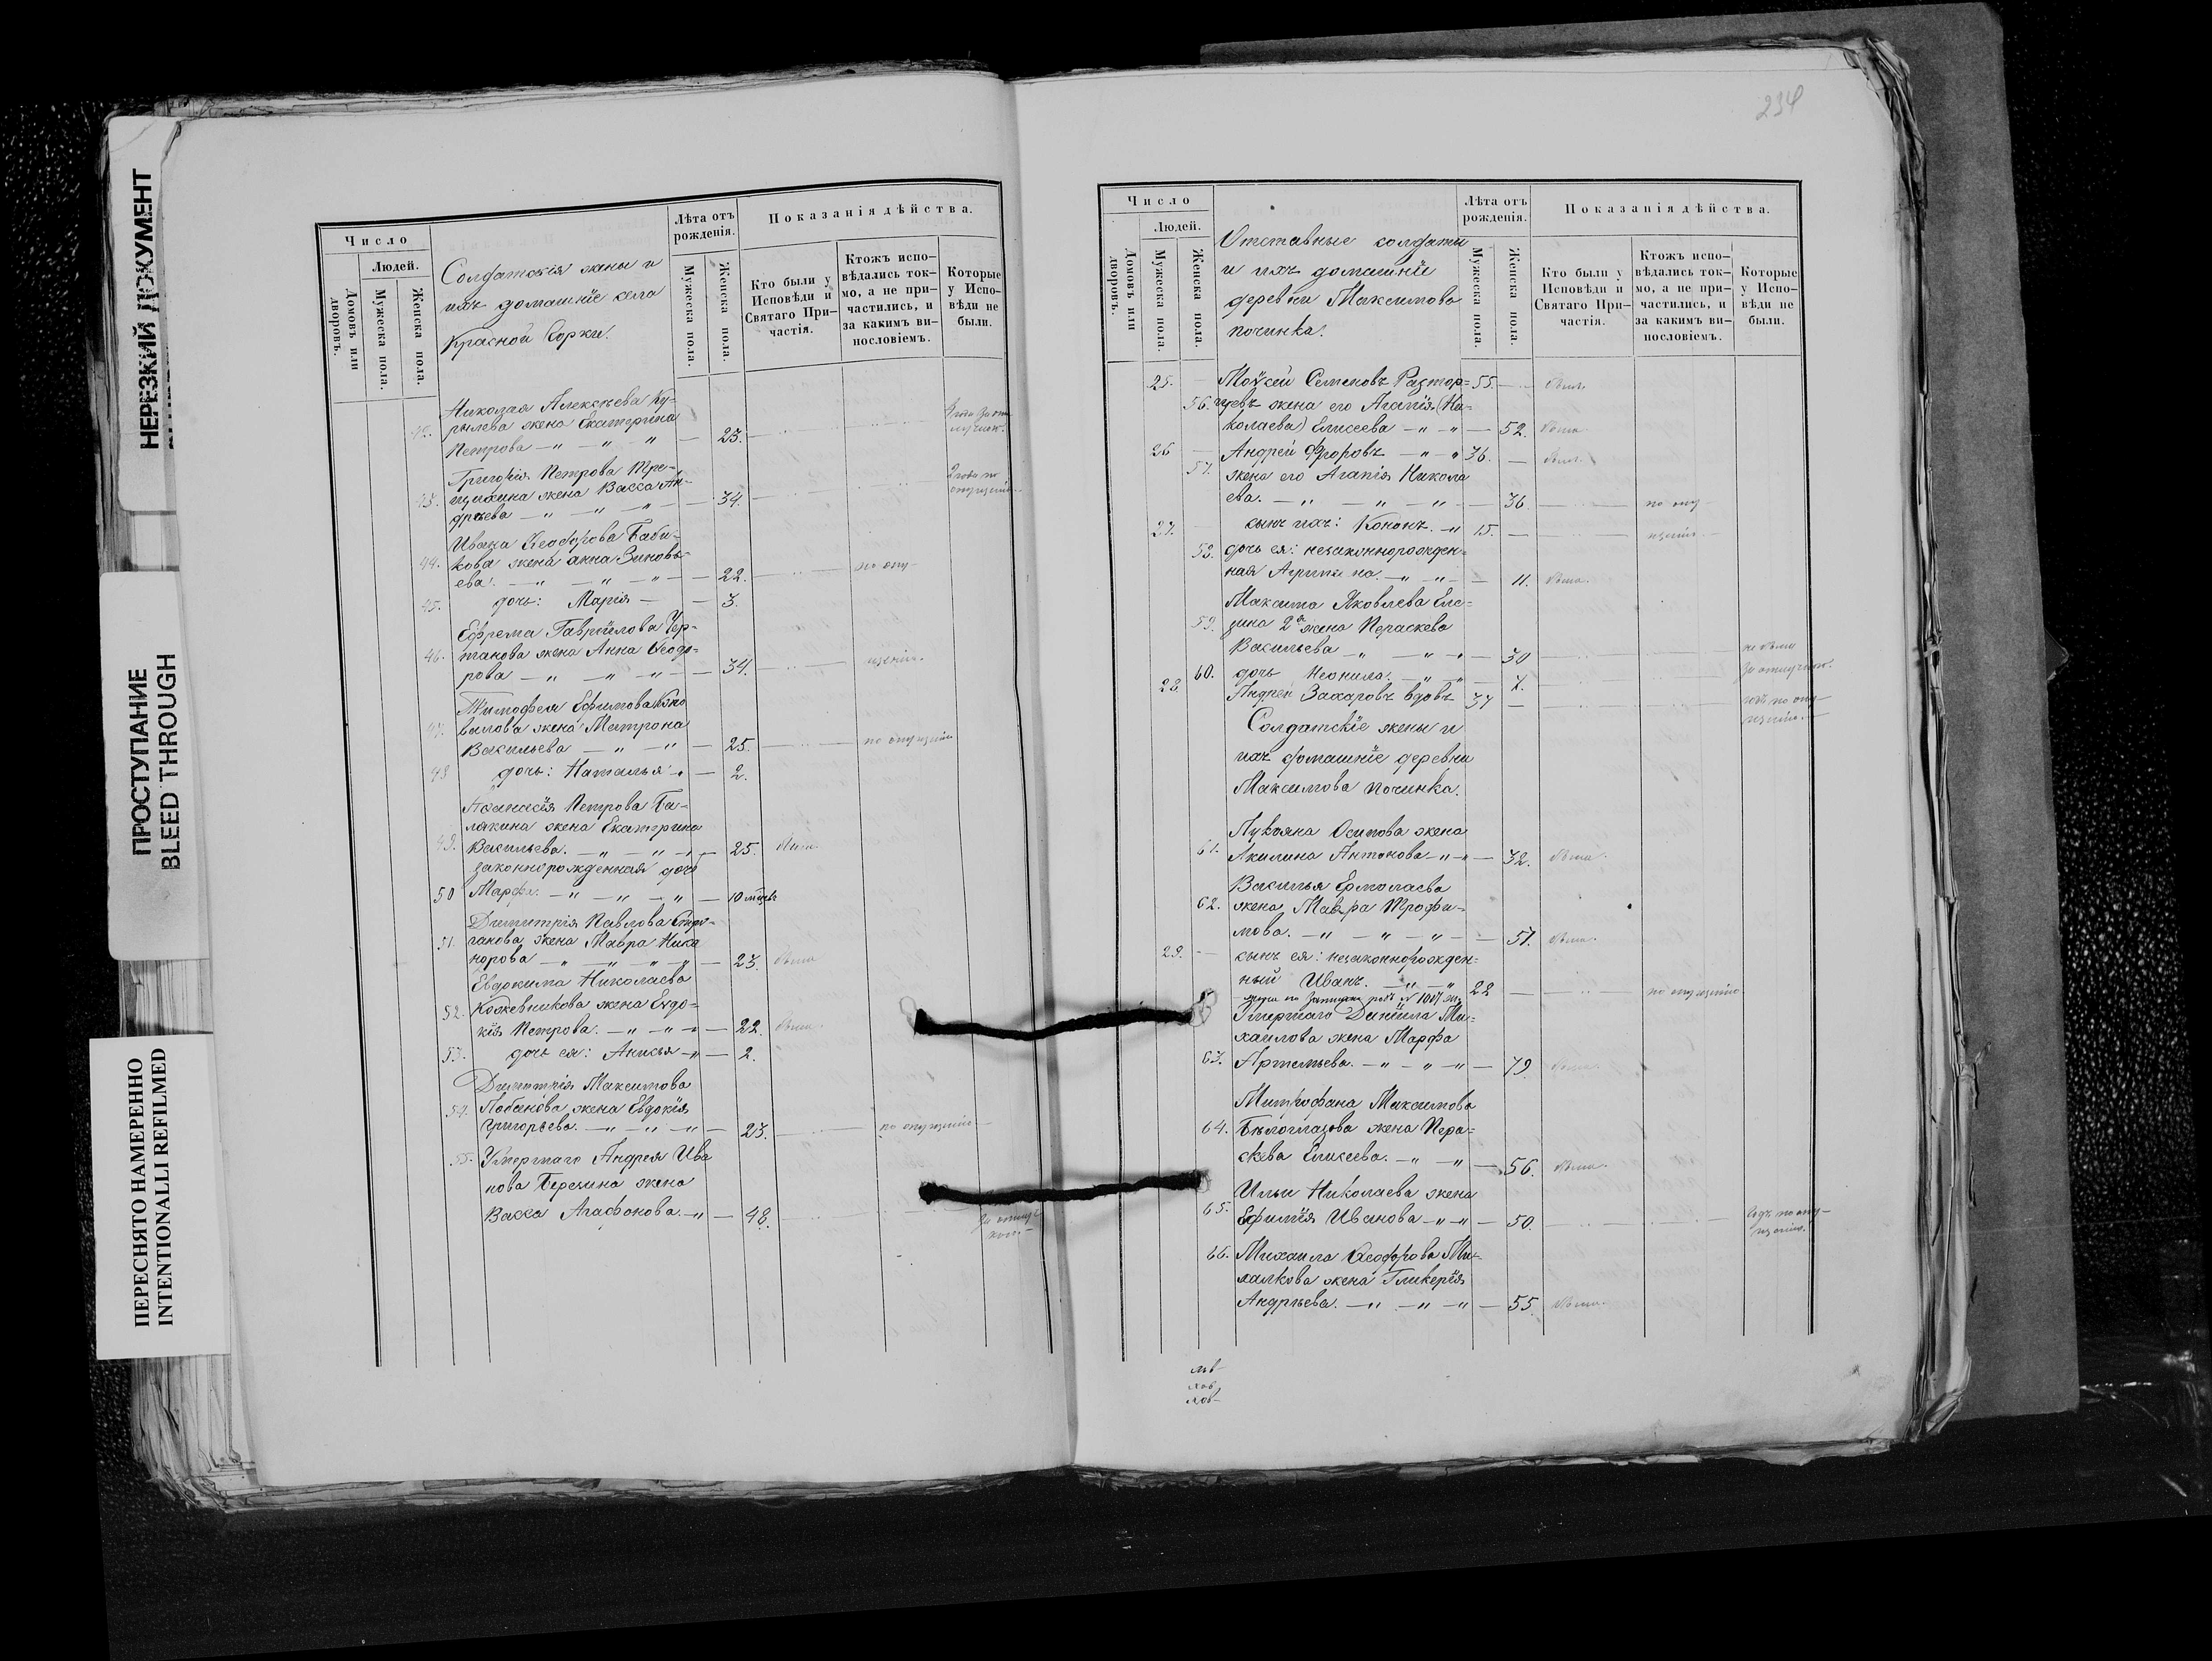 НЕРЕЗКИЙ ДОКУМЕНТ
ПРОСТУПАНИЕ
BLEED THROUGH
ПЕРЕСНЯТО НАМЕРЕННО
INTENTIONALLI REFILMED
Число
Людей.
Домовъ или дворовъ.
Мужеска пола.
Женска пола.
Солдатскія жены и
ихъ домашніе села
Красной Горки.
Лѣта отъ
рожденія.
Мужеска пола.
Женска пола.
Показанія дѣйства.
Кто были у
Исповѣди и
Святаго При-
частія.
Ктожъ испо-
вѣдались ток-
мо, а не при-
частились, и
за какимъ ви-
нословіемъ.
Которые
у Испо-
вѣди не
были.
Николая Алексѣева Ку-
42. рылева жена Екатерина
Петрова — 23.
Григорія Петрова Тре-
43. щихина жена Васса Ан-
дрѣева — 34.
Ивана Ѳеодорова Баби-
44. кова жена Анна Зиновь-
ева. — 22. по опу-
45. дочь: Марія — 3.
Ефрема Гаврилова Чер-
46. танова жена Анна Ѳеодо-
рова — 34. щенію.
Тимофея Ефимова
47. вилова жена Матрона
Васильева — 25. по опущенію
48 дочь: Наталья — 2.
Аѳанасія Петрова Ба-
лякина жена Екатерина
49. Васильева. — 25. была
законнорожденная дочь
50 Марфа. — 10 мѣсцъ
Димитрія Павлова
51. ганова жена Мавра Ника
норова — 23. была
Евдокима Николаева
52. Кожевникова жена Евдо-
кія Петрова. — 22. была
53. дочь ея: Анисья — 2.
Димитрія Максимова
54. Лобанова жена Евдокія
Григорьева. — 23. по опущенію
55. Умершаго Андрея Ива
нова Березина жена
Васса Агафонова. — 48.
234
Число
Людей.
Домовъ или дворовъ.
Мужеска пола.
Женска пола.
Отставные солдаты
и ихъ домашніе
деревни Максимова
починка.
Лѣта отъ
рожденія.
Мужеска пола.
Женска пола.
Показанія дѣйства.
Кто были у
Исповѣди и
Святаго При-
частія.
Ктожъ испо-
вѣдались ток-
мо, а не при-
частились, и
за какимъ ви-
нословіемъ.
Которые
у Испо-
вѣди не
были.
25. Мойсей Семеновъ Разтор- 55. былъ
56. гуевъ жена его Агапія (Ни-
колаева) Елисеева — 52. была
26 Андрей Ѳедоровъ — 36. былъ
57. жена его Агапія Никола
ева. — 36. по опу-
27. сынъ ихъ: Кононъ. — 15. щенію
58. дочь ея: незаконнорожден-
ная Агрипина. — 11. была.
Максима Яковлева Еле-
59. зина 2я жена Пераскева
Васильева — 30 не была
60. дочь Неонила. — 7. за отлучкою.
28. Андрей Захаровъ вдовъ 37 по опу-
щенію.
Солдатскіе жены и
ихъ домашніе деревни
Максимова починка.
Лукояна Осипова жена
61. Акилина Антонова — 32. была.
Василья Ермолаева
62. жена Мавра Трофи-
мова. — 51. была.
29. сынъ ея: незаконнорожден-
ный Иванъ. — 22 по опущенію
Умершаго Даніила Ми-
хаилова жена Марфа
63. Артемьева. — 79. была.
Митрофана Максимова
64. Бѣлоглазова жена Пера-
скева Елисеева. — 56. была.
Ильи Николаева жена
65. Ефимія Иванова — 50. по опу-
щенію.
66. Михаила Ѳеодорова Ми-
халкова жена Гликерія
Андрѣева. — 55. была.